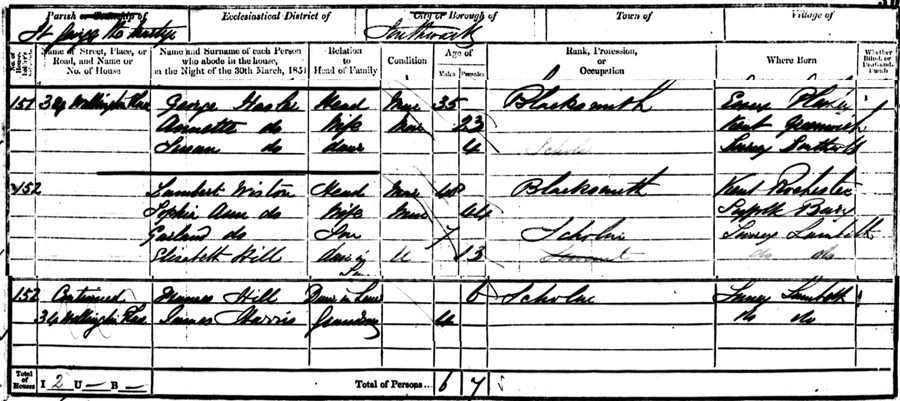 Parish or Township of Ecclesiastical District of City or Borough of Town of Village of
St the Martyr Southwark
Name of Street, Place, or Road, and Name or No. of House
Name and Surname of each Person who abode in the house, on the Night of the 30th March, 1851
Relation to Head of Family
Condition
Age of Males Females
Rank, Profession, or Occupation
Where Born
Whether Blind, or Deaf-and-Dumb
151 34 Wellington George Head Mar 35 Blacksmith Essex
Annette do Wife Mar 23 Kent Greenwich
Susan do daur 4 Schola Surrey
152 Lambert Wiston Head Mar 48 Blacksmith Kent Rochester
Sophia Ann do Wife Mar 44 Suffolk Bury
Garland do Son 7 Scholar Surrey Lambeth
Elizabeth Hill daur in U 13 do do
152 Continued Hill Daur in Law 6 Scholar Surrey Lambeth
34 Wellington James Harris Grandson 4 do do
Total of Houses I 2 U — B — Total of Persons... 6 7